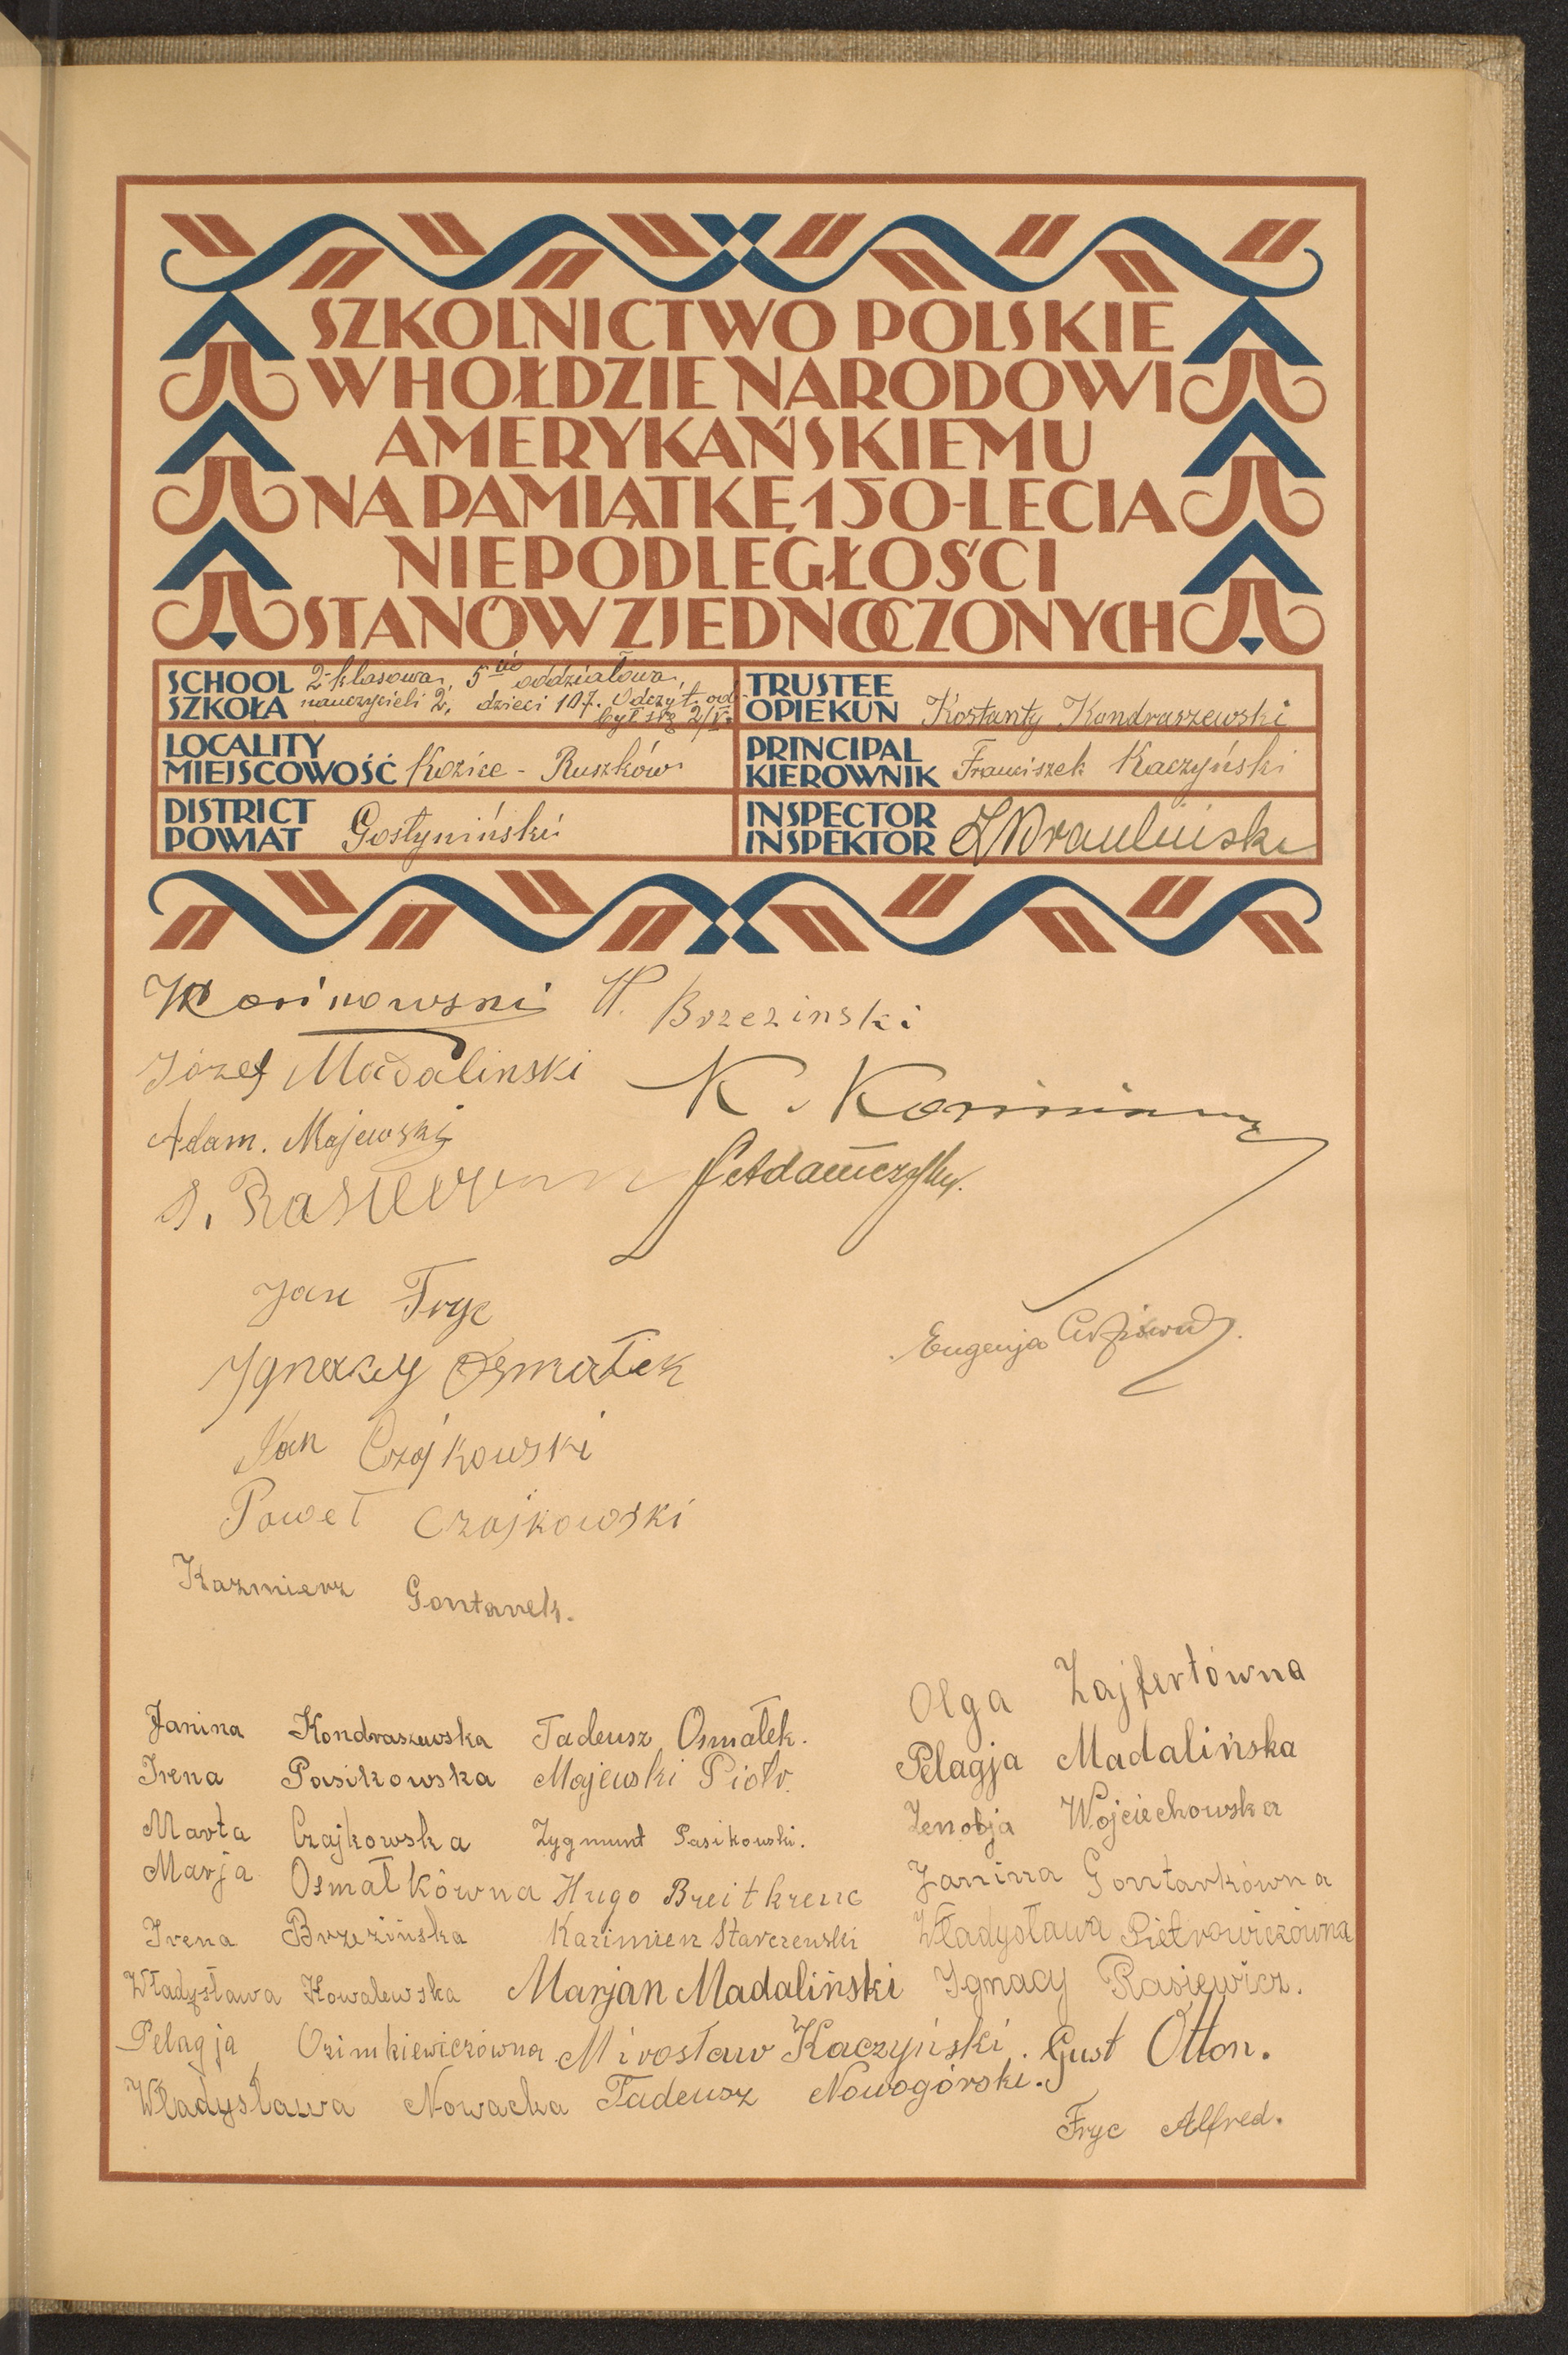 SZKOLNICTWO POLSKIE
W HOŁDZIE NARODOWI
AMERYKAŃSKIEMU
NA PAMIĄTKĘ 150-LECIA
NIEPODLEGŁOŚCI
STANÓW ZJEDNOCZONYCH
SCHOOL
SZKOŁA
2-klasowa, 5cio oddziałowa,
nauczycieli 2, dzieci 107. Odczyt. od-
był się 2/V.
TRUSTEE
OPIEKUN Kostanty Kondraszewski
LOCALITY
MIEJSCOWOŚĆ Kozice - Ruszków
PRINCIPAL
KIEROWNIK Franciszek Kaczyński
DISTRICT
POWIAT Gostyniński
INSPECTOR
INSPEKTOR
W. Brzezinski
Józef Madalinski
K.
Adam. Majewski
S.
Jan Fryc
Ignacy Osmałek
Eugenja
Jan Czajkowski
Paweł Czajkowski
Kazmierz Gontarek.
Olga Zajfertówna
Janina Kondraszewska Tadeusz Osmałek.
Pelagja Madalińska
Irena Pasikowska Majewski Piotr.
Zenobja Wojciechowska
Marta Czajkowska Zygmunt Pasikowski.
Marja Osmałkówna Hugo Breitkreuc
Janina Gontarkówna
Irena Brzezińska Kazimierz Starczewski
Władysława Pietrowiczówna
Władysława Kowalewska Marjan Madaliński Ignacy Rasiewicz.
Pelagja Ozimkiewiczówna Mirosław Kaczyński. Gust Otton.
Władysława Nowacka Tadeusz Nowogórski.
Fryc Alfred.